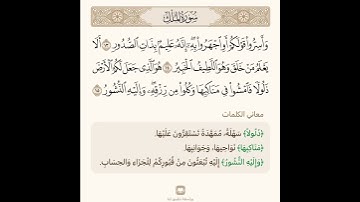 سُورَةُ الْمُلْكِ
وَأَسِرُّوا قَوْلَكُمْ أَوِ اجْهَرُوا بِهِ ۖ إِنَّهُ عَلِيمٌ بِذَاتِ الصُّدُورِ ١٣ أَلَا
يَعْلَمُ مَنْ خَلَقَ وَهُوَ اللَّطِيفُ الْخَبِيرُ ١٤ هُوَ الَّذِي جَعَلَ لَكُمُ الْأَرْضَ
ذَلُولًا فَامْشُوا فِي مَنَاكِبِهَا وَكُلُوا مِن رِّزْقِهِ ۖ وَإِلَيْهِ النُّشُورُ ١٥
معاني الكلمات
﴿ذَلُولًا﴾ سَهْلَةً، مُمَهَّدَةً تَسْتَقِرُّونَ عَلَيْهَا.
﴿مَنَاكِبِهَا﴾ نَوَاحِيهَا، وَجَوَانِبِهَا.
﴿وَإِلَيْهِ النُّشُورُ﴾ إِلَيْهِ تُبْعَثُونَ مِنْ قُبُورِكُمْ لِلْجَزَاءِ وَالحِسَابِ.